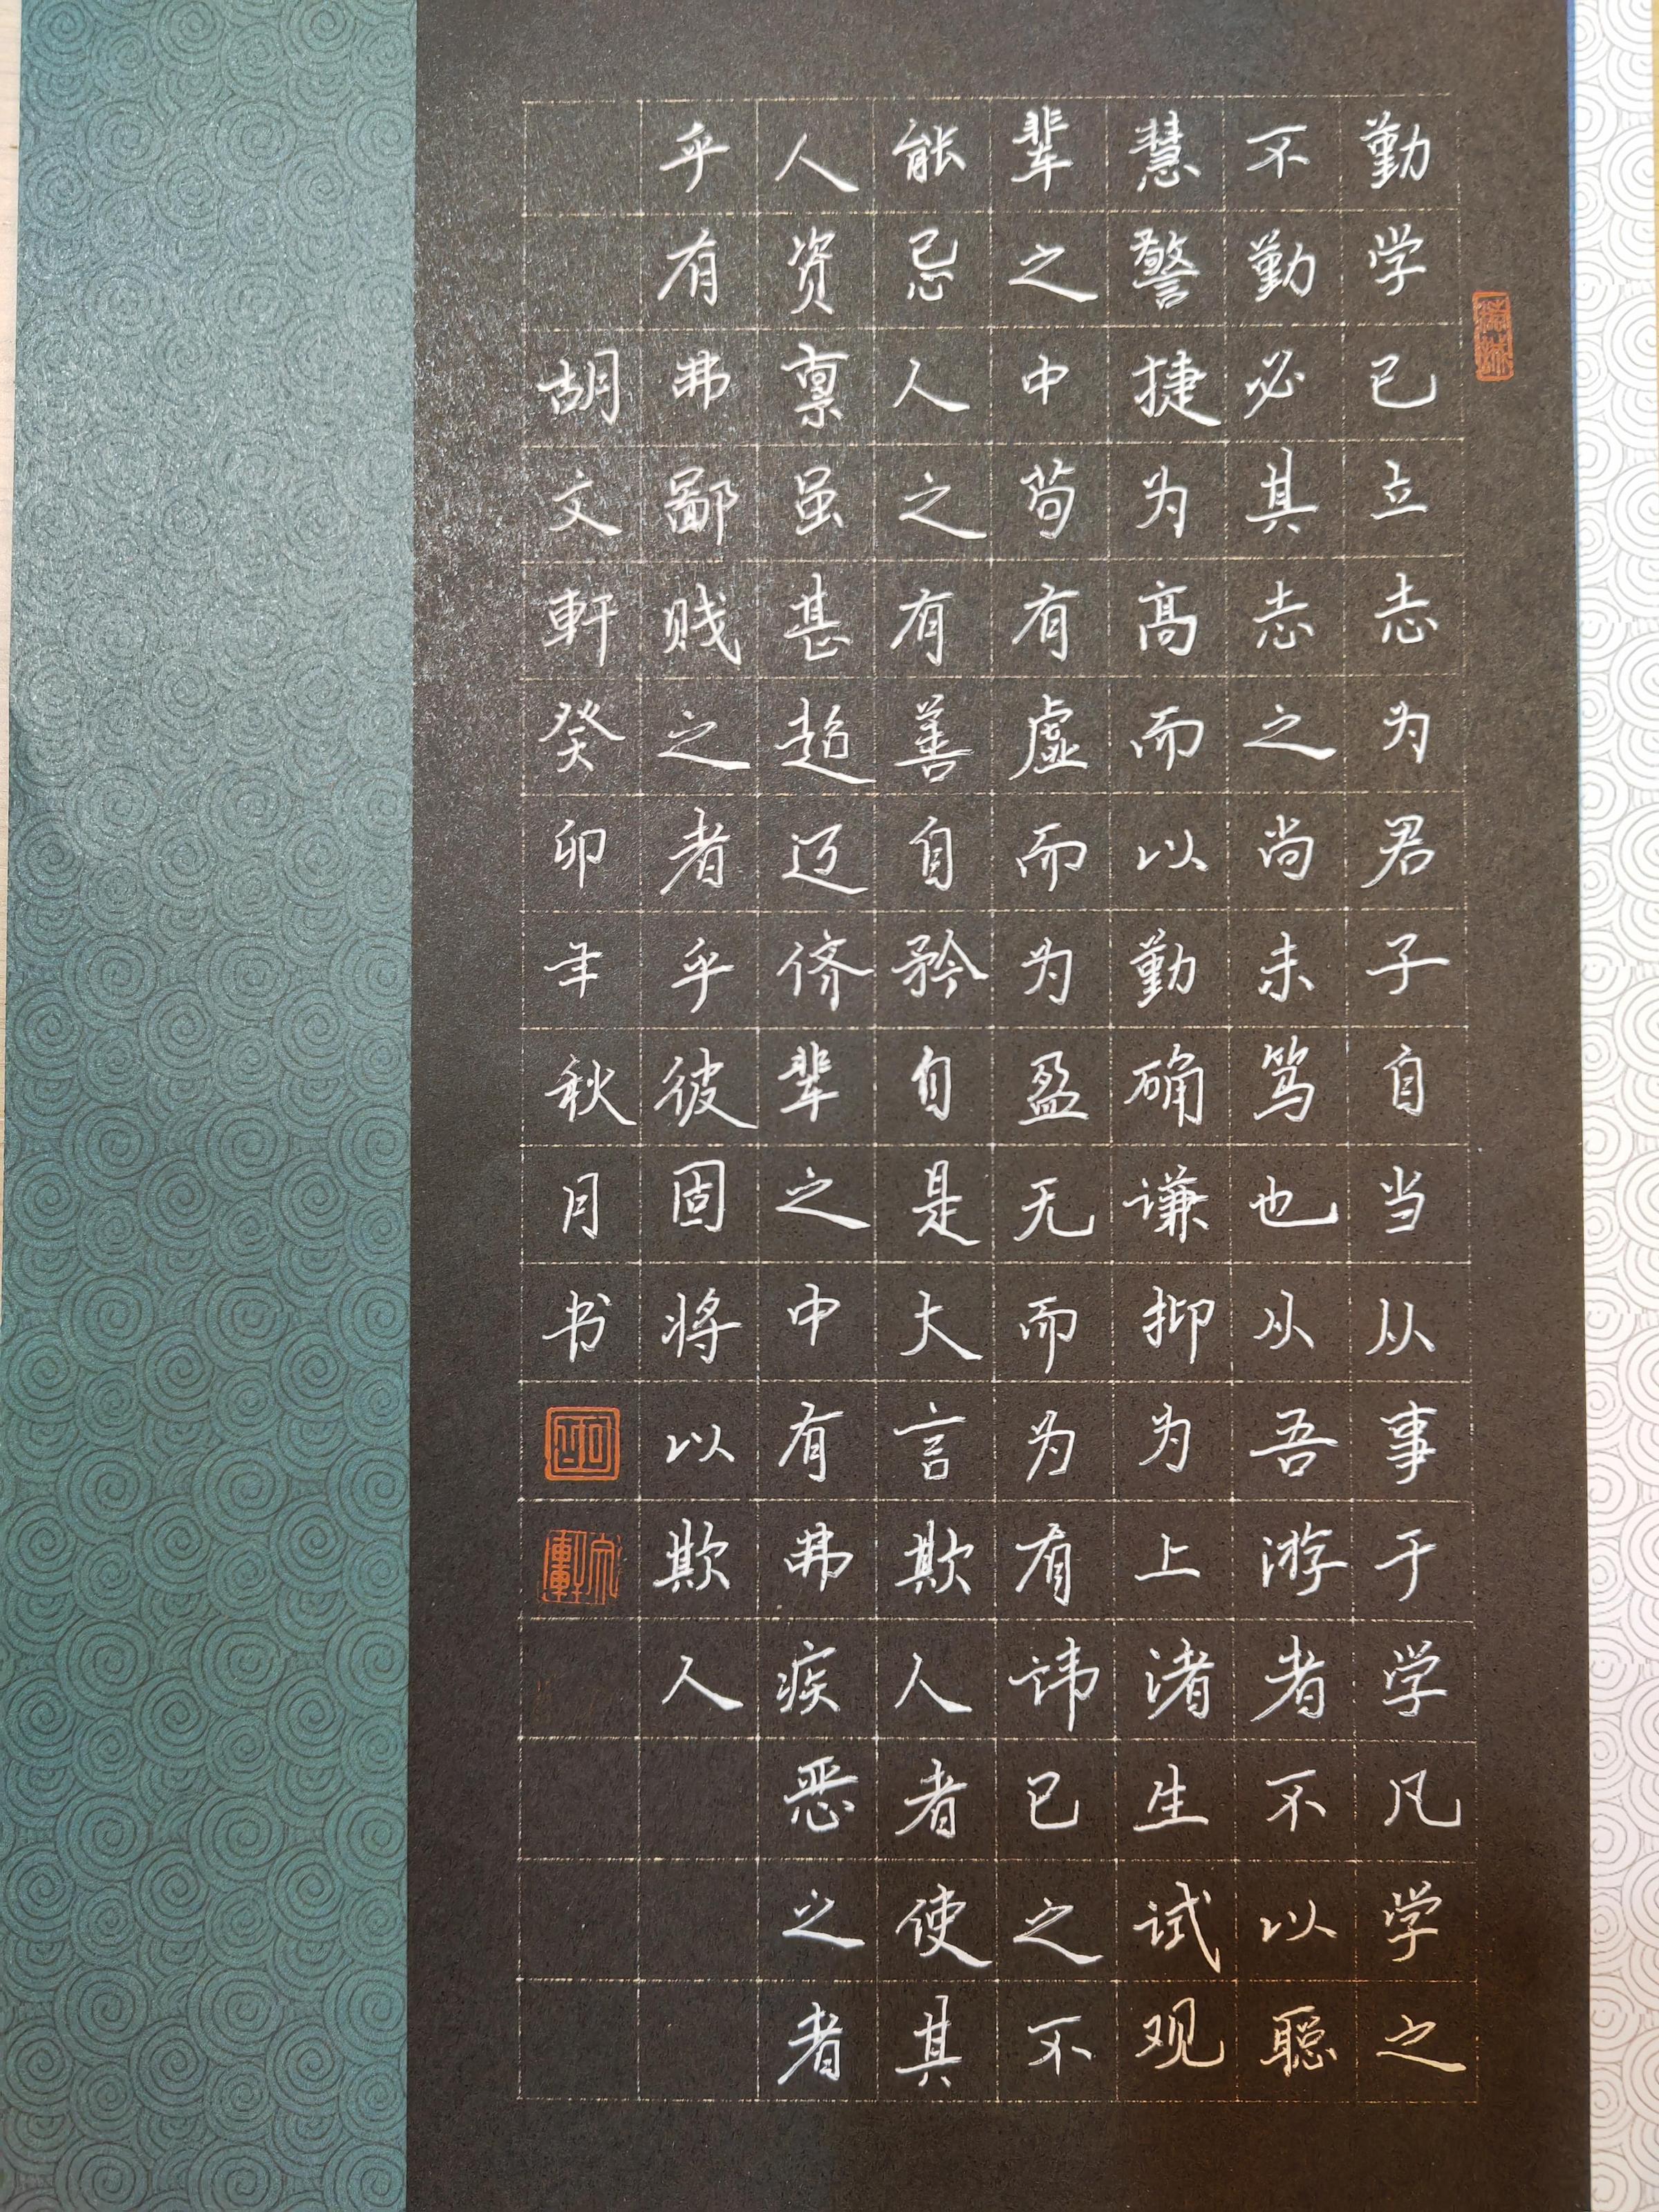 勤学已立志为君子自当从事于学凡学之
不勤必其志之尚未笃也从吾游者不以聪
慧警捷为高而以勤确谦抑为上渚生试观
辈之中苟有虚而为盈无而为有讳已之不
能忌人之有善自矜自是大言欺人者使其
人资禀虽甚超迈侪辈之中有弗疾恶之者
乎有弗鄙贱之者乎彼固将以欺人
胡文軒癸卯年秋月书
文軒